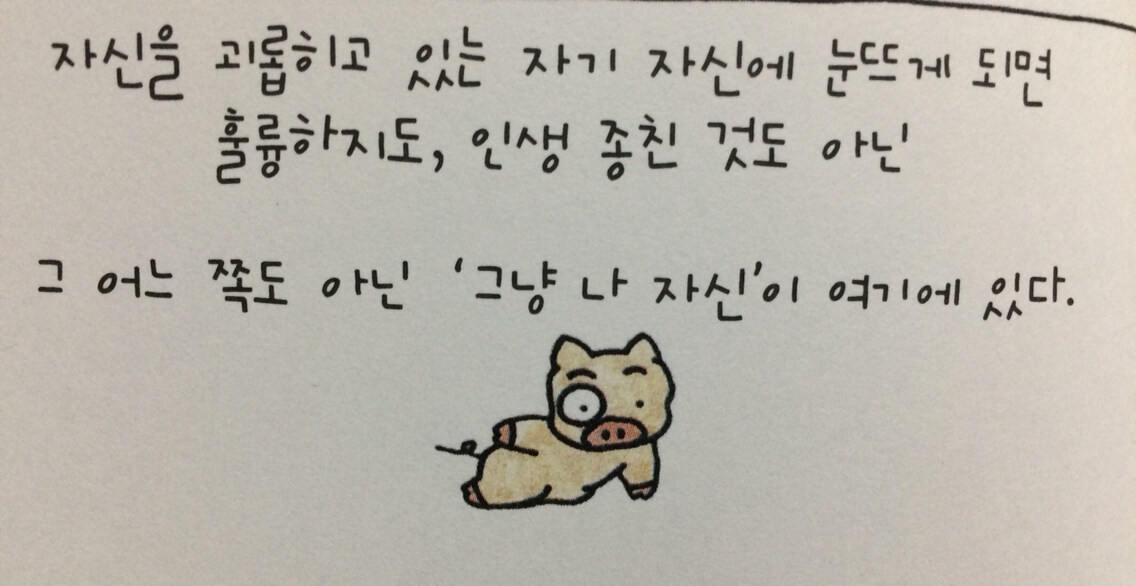 자신을 괴롭히고 있는 자기 자신에 눈뜨게 되면
훌륭하지도, 인생 종친 것도 아닌
그 어느 쪽도 아닌 '그냥 나 자신'이 여기에 있다.